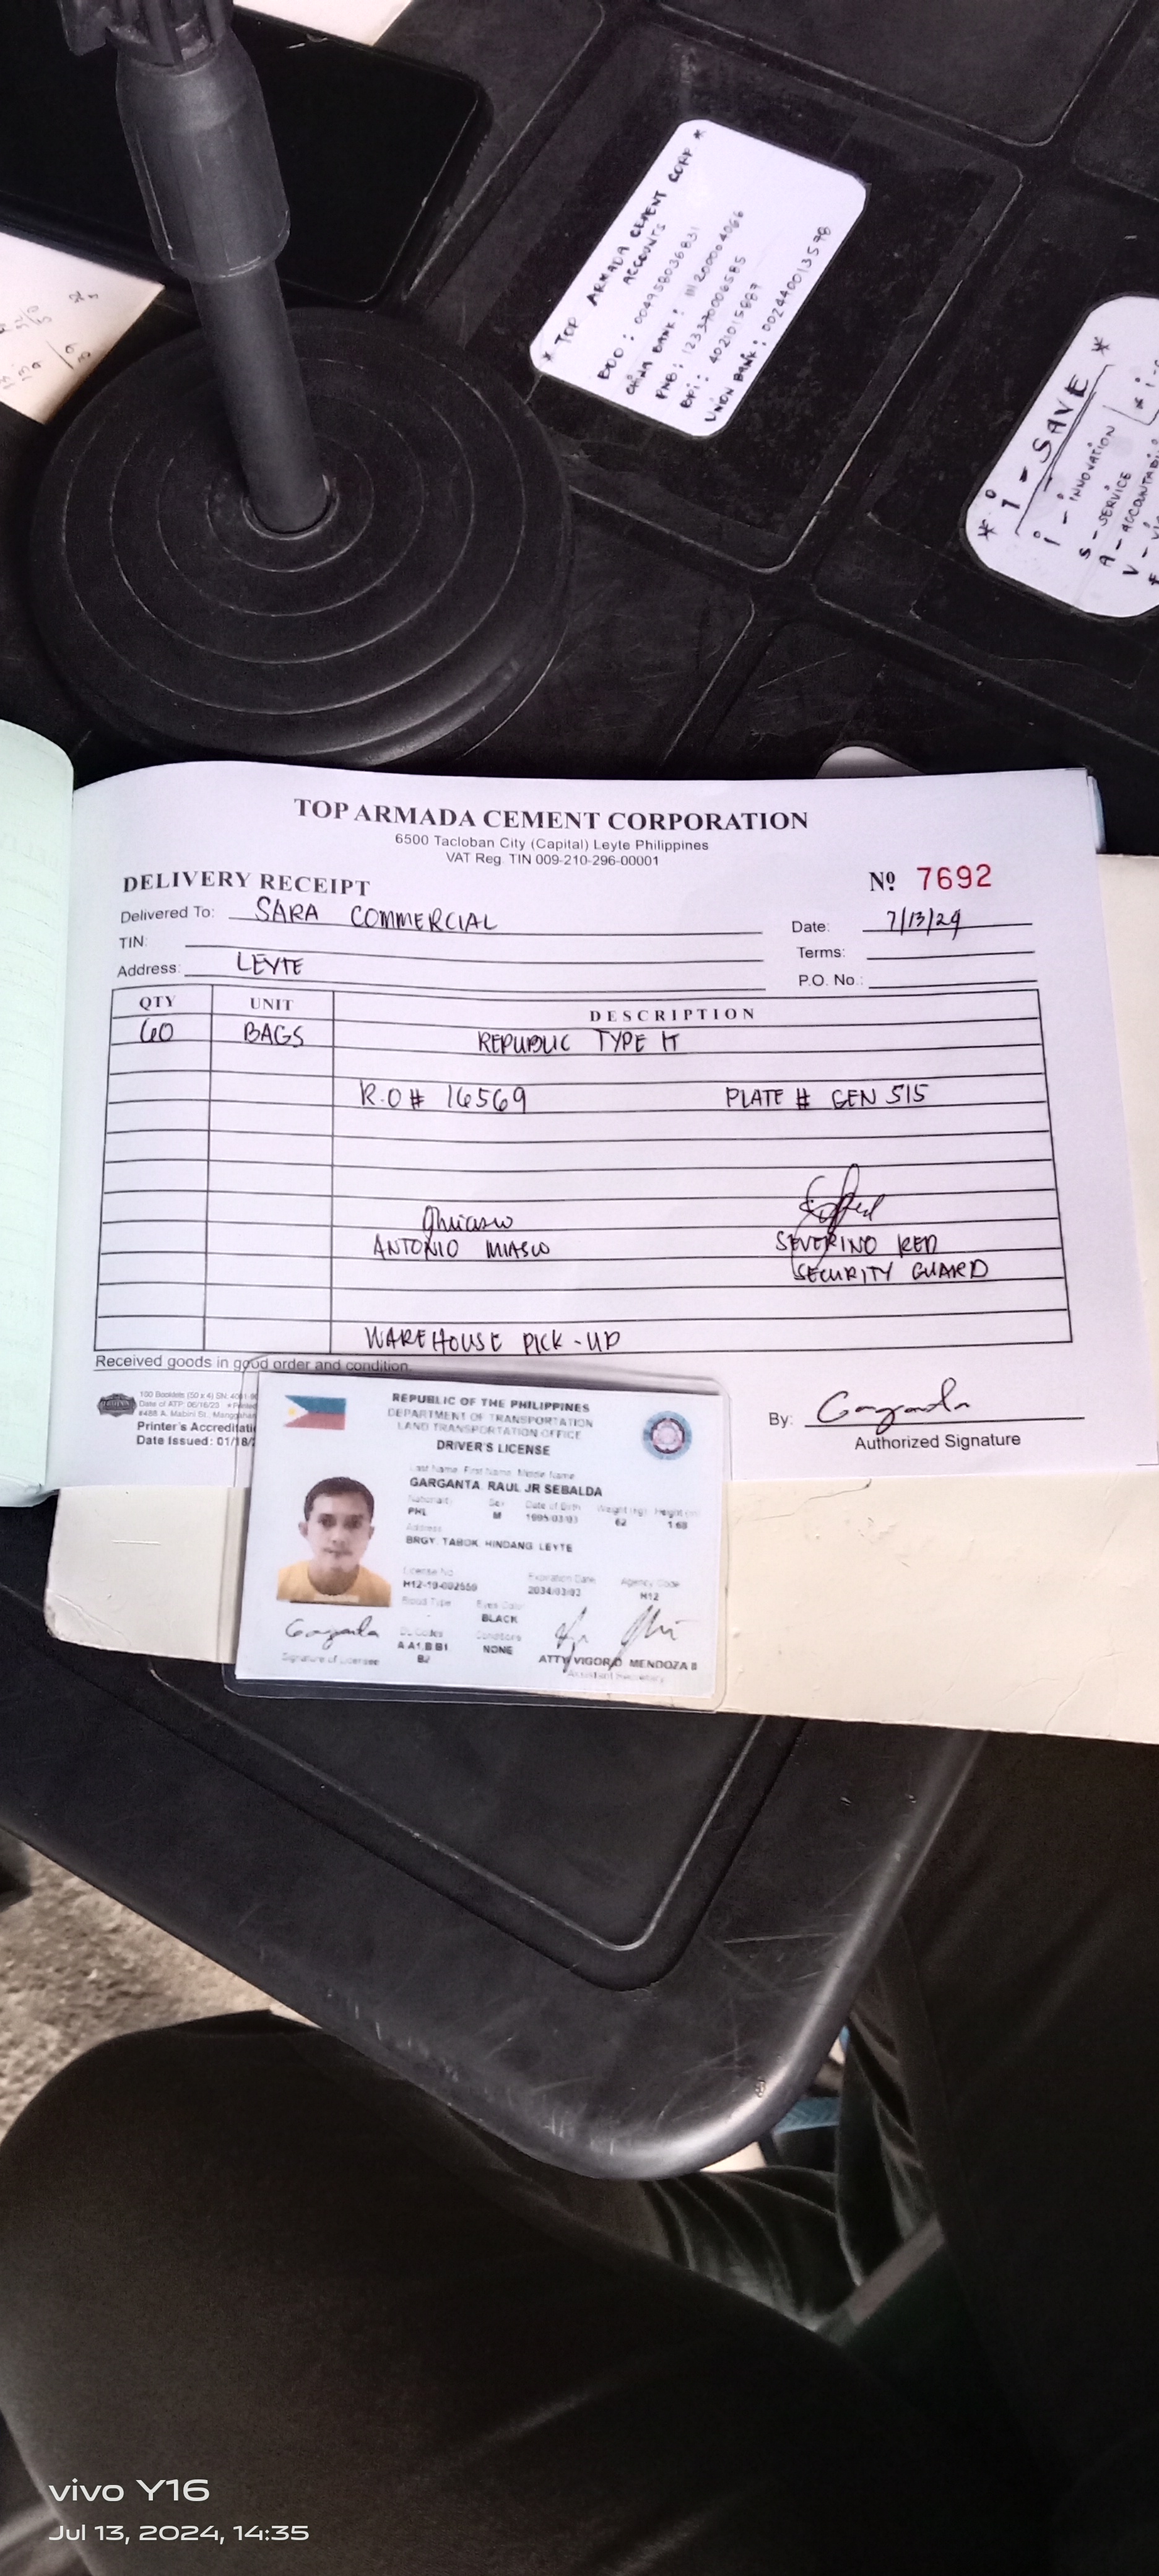 * TOP ARMADA CEMENT CORP *
ACCOUNTS
BDO : 004958036831
CHINA BANK :
PNB : 123370006585
BPI : 4021015887
UNION BANK : 002440013578
* i - SAVE *
i - INNOVATION
S - SERVICE
A -
V -
TOP ARMADA CEMENT CORPORATION
6500 Tacloban City (Capital) Leyte Philippines
VAT Reg. TIN 009-210-296-00001
DELIVERY RECEIPT
Nº 7692
Delivered To: SARA COMMERCIAL
Date: 7/13/24
TIN:
Terms:
Address: LEYTE
P.O. No.:
QTY UNIT DESCRIPTION
60 BAGS REPUBLIC TYPE IT
R.O # 16569 PLATE # GEN 515
ANTONIO MIASCO SEVERINO RED
SECURITY GUARD
WAREHOUSE PICK-UP
Received goods in good order and condition.
100 Booklets (50 x 4) SN:
Date of ATP: 06/16/23
6488 A. Mabini St.,
Printer's
Date Issued: 01/18/
By: Garganta
Authorized Signature
REPUBLIC OF THE PHILIPPINES
DEPARTMENT OF TRANSPORTATION
LAND TRANSPORTATION OFFICE
DRIVER'S LICENSE
Last Name, First Name, Middle Name
GARGANTA, RAUL JR SEBALDA
Nationality Sex Date of Birth Weight (kg) Height (m)
PHL M 1995/03/03 62 1.68
Address
BRGY. TABOK HINDANG, LEYTE
License No. Expiration Date Agency Code
H12-19-002550 2034/03/03 H12
Blood Type Eyes Color
BLACK
DL Codes Conditions
A,A1,B,B1 NONE
B2
Signature of Licensee
ATTY VIGOR D. MENDOZA II
Assistant Secretary
vivo Y16
Jul 13, 2024, 14:35